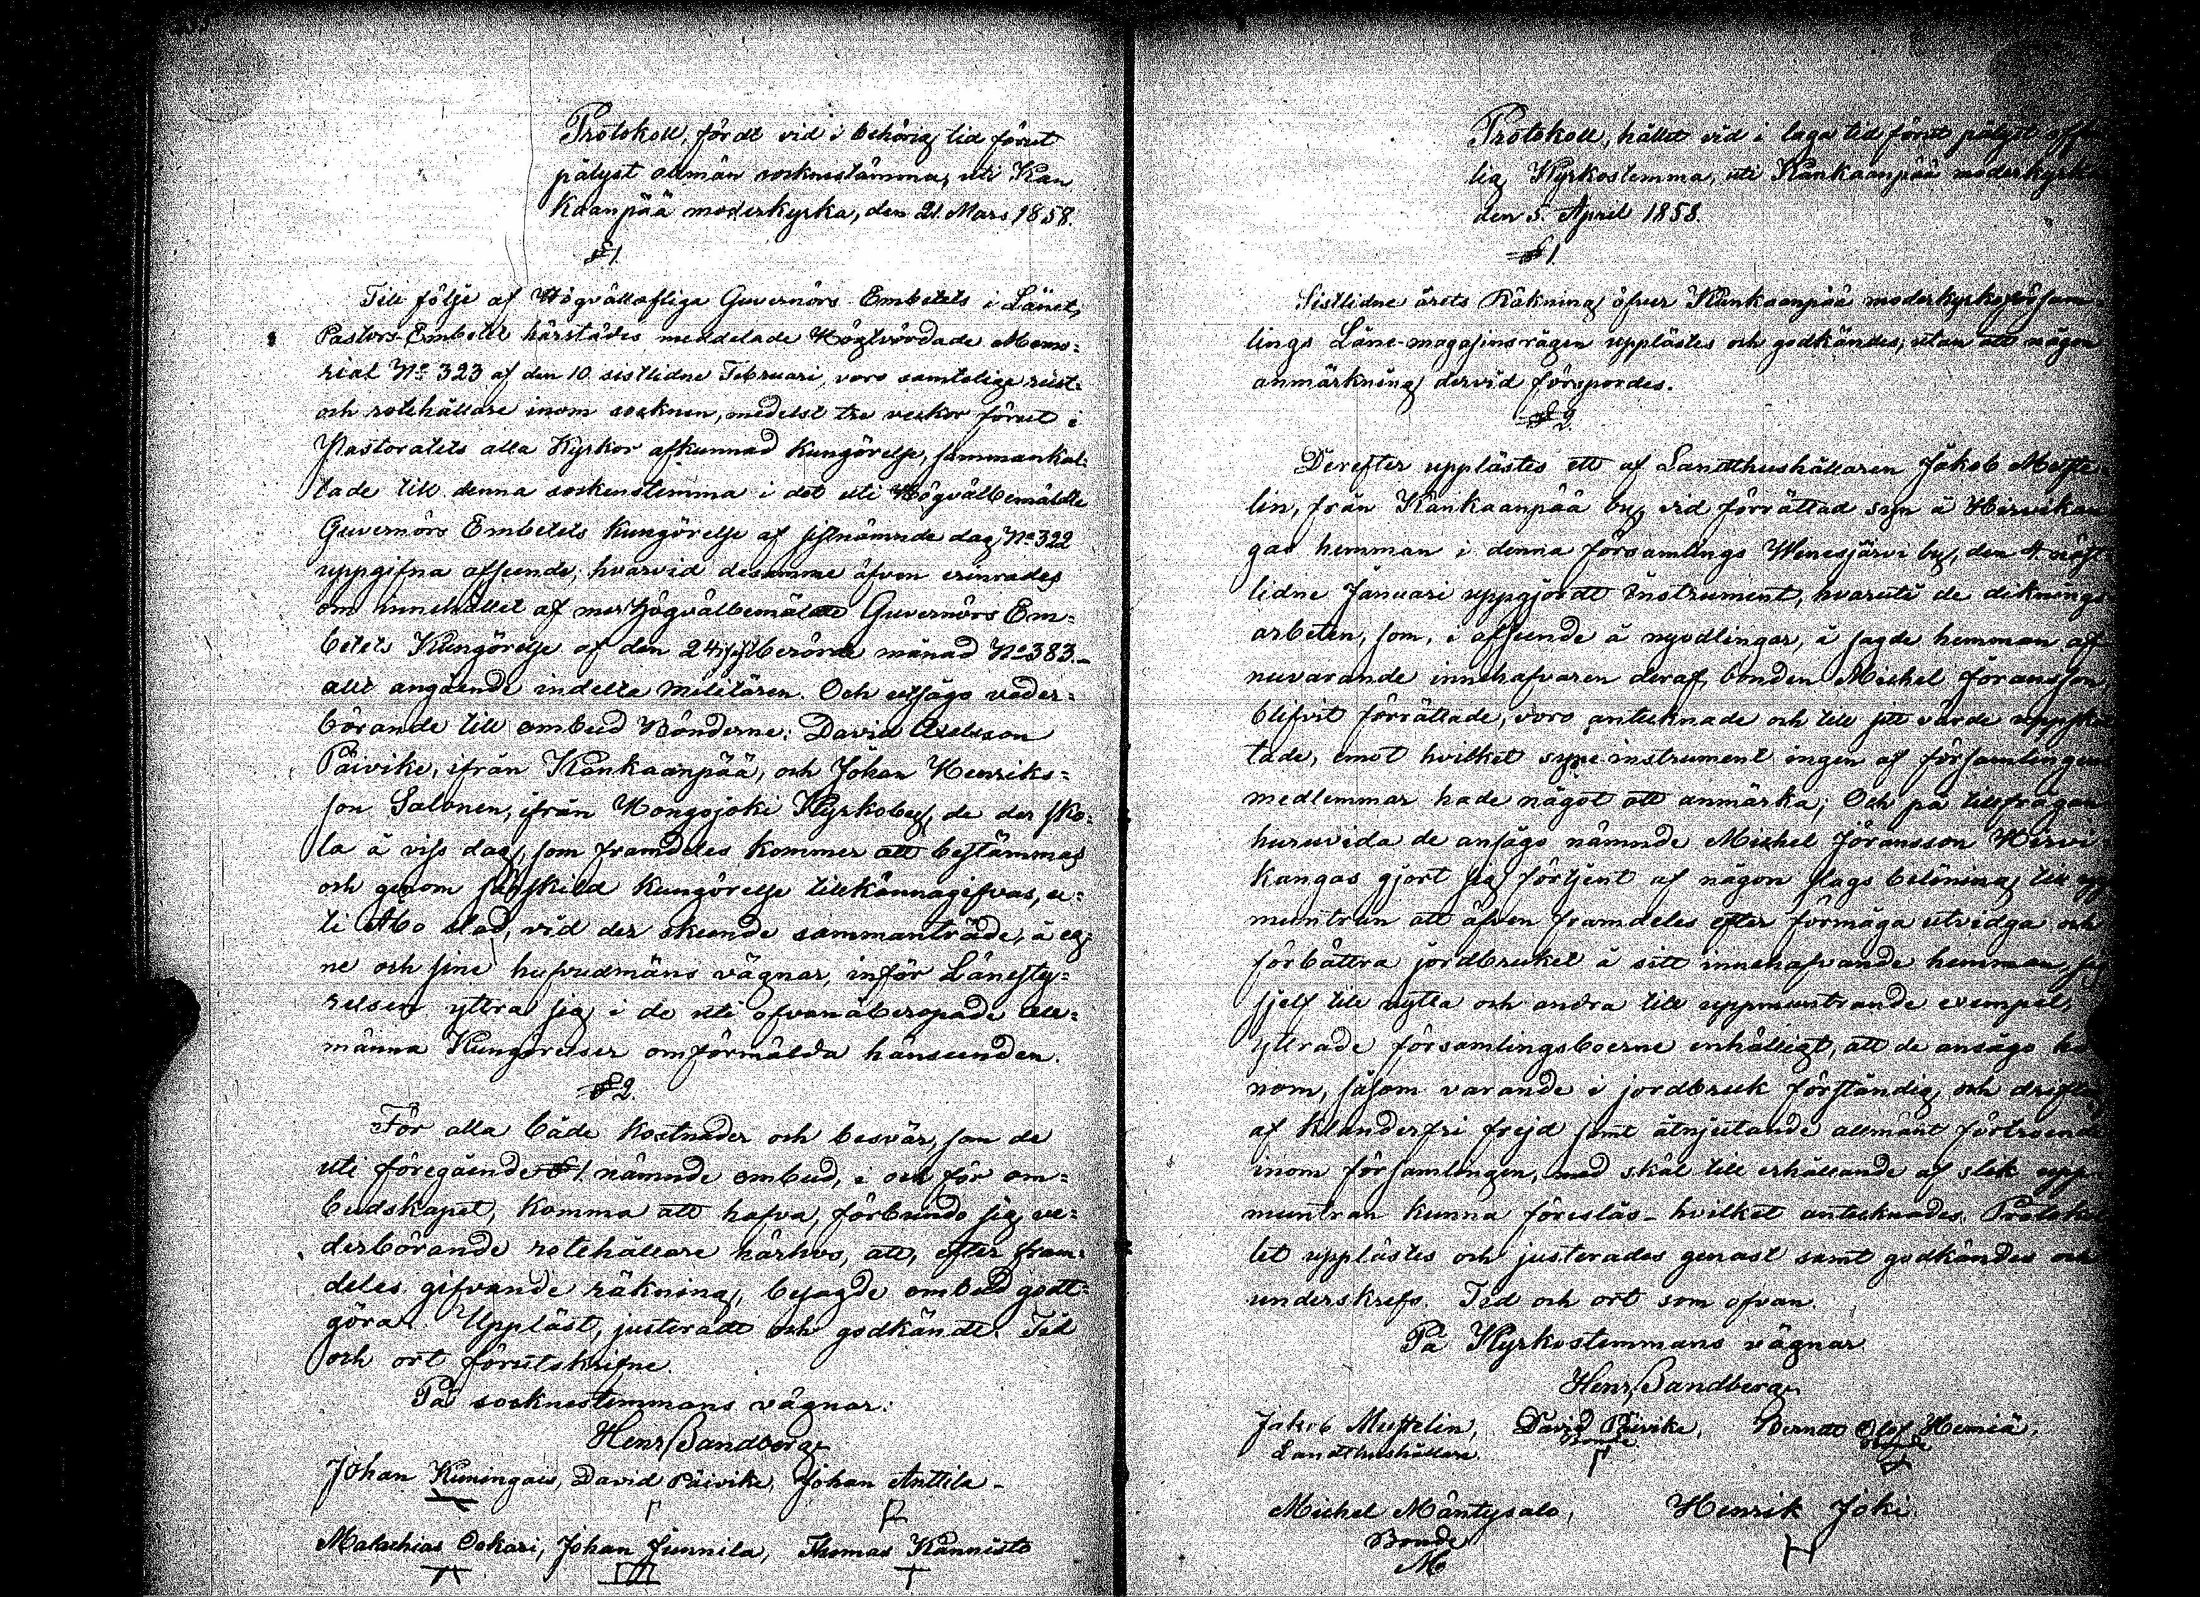 Protokoll, fördt vid i behörig tid förut
pålyst allmän socknestämma, uti Kan
kaanpää moderkyrka, den 21. Mars 1858.
§ 1.
Till följe af Högvällofliga Guvernörs Embetets i Länet,
Pastors-Embetet härstädes meddelade Högtvördade Memo=
rial No 323 af den 10 sistlidne Februari, voro samtelige rust-
och rotehållare inom socknen, medelst tre veckor förut i
Pastoratets alla Kyrkor afkunnad Kungörelse, sammankal=
lade till denna sockenstemma i det uti Högvälbemälte
Guvernörs Embetets Kungörelse af sistnämnde dag No 322
uppgifna afseende; hvarvid desamme äfven erinrades
om innehållet af mer Högvälbemälte Guvernörs Em=
betets Kungörelse af den 24 sistberörde månad No 383.-
allt angående indelta militären. Och utsågo veder=
börande till ombud Bönderne: David Axelsson
Päivike, ifrån Kankaanpää, och Johan Henriks=
son Salonen, ifrån Hongojoki Kyrkoby, de der sko=
la å viss dag, som framdeles kommer att bestämmas
och genom särskild Kungörelse tillkännagifvas, u=
ti Åbo stad, vid der skeende sammanträde, å eg=
ne och sine hufvudmäns vägnar, inför Länesty=
relsen yttra sig i de uti ofvanåberopade all=
männa Kungörelser omförmälda hänseenden.
§ 2.
För alla både kostnader och besvär, som de
uti föregående § 1. nämnde ombud, i och för om=
budskapet, komma att hafva, förbundo sig ve=
derbörande rotehållare härhos, att, efter fram=
deles gifvande räkning, besagde ombud godt=
göra. Uppläst, justeradt och godkändt. Tid
och ort förutskrifne.
På socknestemmans vägnar:
Henr. Sandberg
Johan Kuningais, David Päivike, Johan Anttila -
Malachias Oskari, Johan Junnila, Thomas Kannisto
Protokoll, hållet vid i laga tid förut pålyst
lig Kyrkostemma, uti Kankaanpää moderkyrk
den 5. April 1858.
§ 1.
Sistlidne årets Räkning öfver Kankaanpää moderkyrkoförsam
lings Låne-magasinsrågen upplästes och godkändes, utan att någon
anmärkning dervid förspordes.
§ 2.
Derefter upplästes ett af Landthushållaren Jakob
lin, från Kankaanpää by, vid förrättad syn å Hirvikan
gas hemman i denna församlings Wenesjärvi by, den 4 näst
lidne Januari uppgjordt instrument, hvaruti de diknings
arbeten, som, i afseende å nyodlingar, å sagde hemman af
nuvarande innehafvaren deraf, bonden Michel Jöransson,
blifvit förrättade, voro antecknade och till sitt värde uppskat
tade, emot hvilket syne instrument ingen af församlingens
medlemmar hade något att anmärka; Och på tillfrågan
huruvida de ansågo nämnde Michel Jöransson Hirvi
kangas gjort sig förtjent af någon slags belöning till upp
muntran att äfven framdeles efter förmåga utvidga och
förbättra jordbruket å sitt innehafvande hemman, sig
sjelf till nytta och andra till uppmuntrande exempel,
yttrade församlingsboerne enhälligt, att de ansågo ho
nom, såsom varande i jordbruk förståndig och driftig
af klanderfri frejd samt åtnjutande allmänt förtroende
inom församlingen, med skäl till erhållande af slik upp
muntran kunna föreslås - hvilket antecknades. Protokol
let upplästes och justerades genast samt godkändes och
underskrefs. Tid och ort som ofvan.
På Kyrkostemmans vägnar
Henr. Sandberg
Jakob David Päivike, Olof
Landthushållare. Bonde Bonde
Michel Mäntysalo, Henrik Joki
Bonde
M